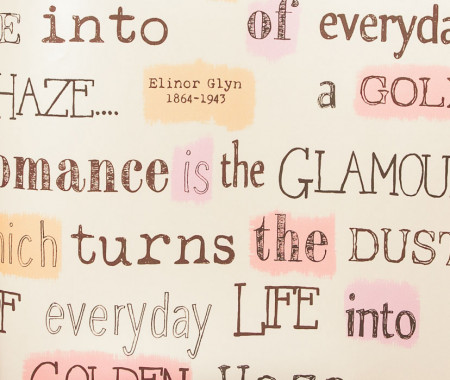 E into of everyda
HAZE.... Elinor Glyn a GOL
1864-1943
omance is the GLAMOU
hich turns the DUST
F everyday LIFE into
GOLDEN HAZE